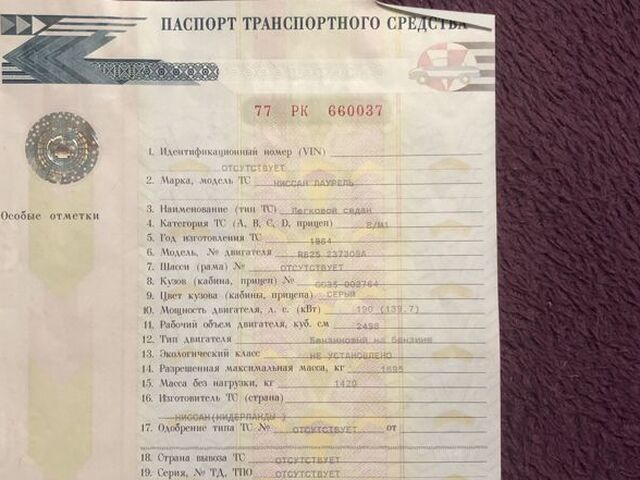 ПАСПОРТ ТРАНСПОРТНОГО СРЕДСТВА
77 РК 660037
1. Идентификационный номер (VIN)
ОТСУТСТВУЕТ
2. Марка, модель ТС НИССАН ЛАУРЕЛЬ
Особые отметки
3. Наименование (тип ТС) Легковой седан
4. Категория ТС (А, В, С, D, прицеп) B/M1
5. Год изготовления ТС
6. Модель, № двигателя RB25
7. Шасси (рама) № ОТСУТСТВУЕТ
8. Кузов (кабина, прицеп) № 002764
9. Цвет кузова (кабины, прицепа) СЕРЫЙ
10. Мощность двигателя, л. с. (кВт) 190 (139.7)
11. Рабочий объем двигателя, куб. см 2498
12. Тип двигателя Бензиновый на бензине
13. Экологический класс НЕ УСТАНОВЛЕНО
14. Разрешенная максимальная масса, кг 1695
15. Масса без нагрузки, кг 1420
16. Изготовитель ТС (страна)
НИССАН(НИДЕРЛАНДЫ )
17. Одобрение типа ТС № ОТСУТСТВУЕТ от
18. Страна вывоза ТС ОТСУТСТВУЕТ
19. Серия, № ТД, ТПО ОТСУТСТВУЕТ